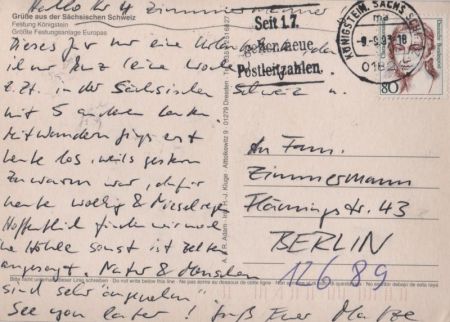 Hallo Ihr 4 Zimmermänner
Grüße aus der Sächsischen Schweiz
Festung Königstein
Größte Festungsanlage Europas
Dieses Jahr nur eine
ist nur kurz (eine Woche
z.Zt. in der Sächsischen Schweiz u.
mit 5 anderen Leuten.
Mit Wandern fings erst
heute los, weils gestern
zu warm war, dafür
heute wolkig & Nieselregen
Hoffentlich finden wir noch
ne Höhle sonst ist Zelten
angesagt. Natur & Menschen
sind sehr "angenehm"
See you later! Gruß Euer
Seit 1.7.
gelten neue
Postleitzahlen.
KÖNIGSTEIN, SÄCHS
ma
-9.-9.93-18
Deutsche Bundespost
80
An Fam.
Zimmermann
Flämingstr. 43
BERLIN
12689
Bitte nicht unterhalb dieser Linie schreiben - Do not write below this line - Ne pas écrire au dessous de cette ligne